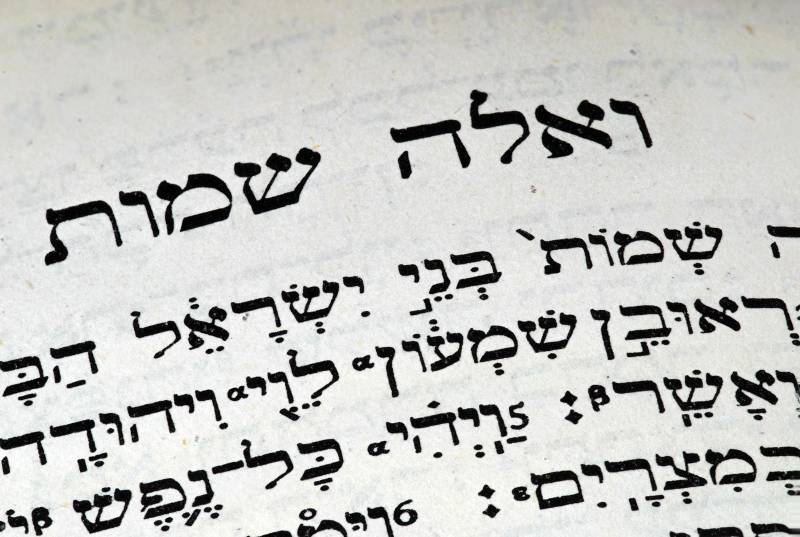 ואלה שמות
שְׁמוֹת֙ בְּנֵ֣י יִשְׂרָאֵ֔ל
רְאוּבֵ֣ן שִׁמְע֔וֹן α לֵוִ֖י α וִיהוּדָֽה
וְאָשֵֽׁר β ׃ 5 וַֽיְהִ֗י α כָּל־נֶ֛פֶשׁ β
בְמִצְרָֽיִם ε ׃ 6